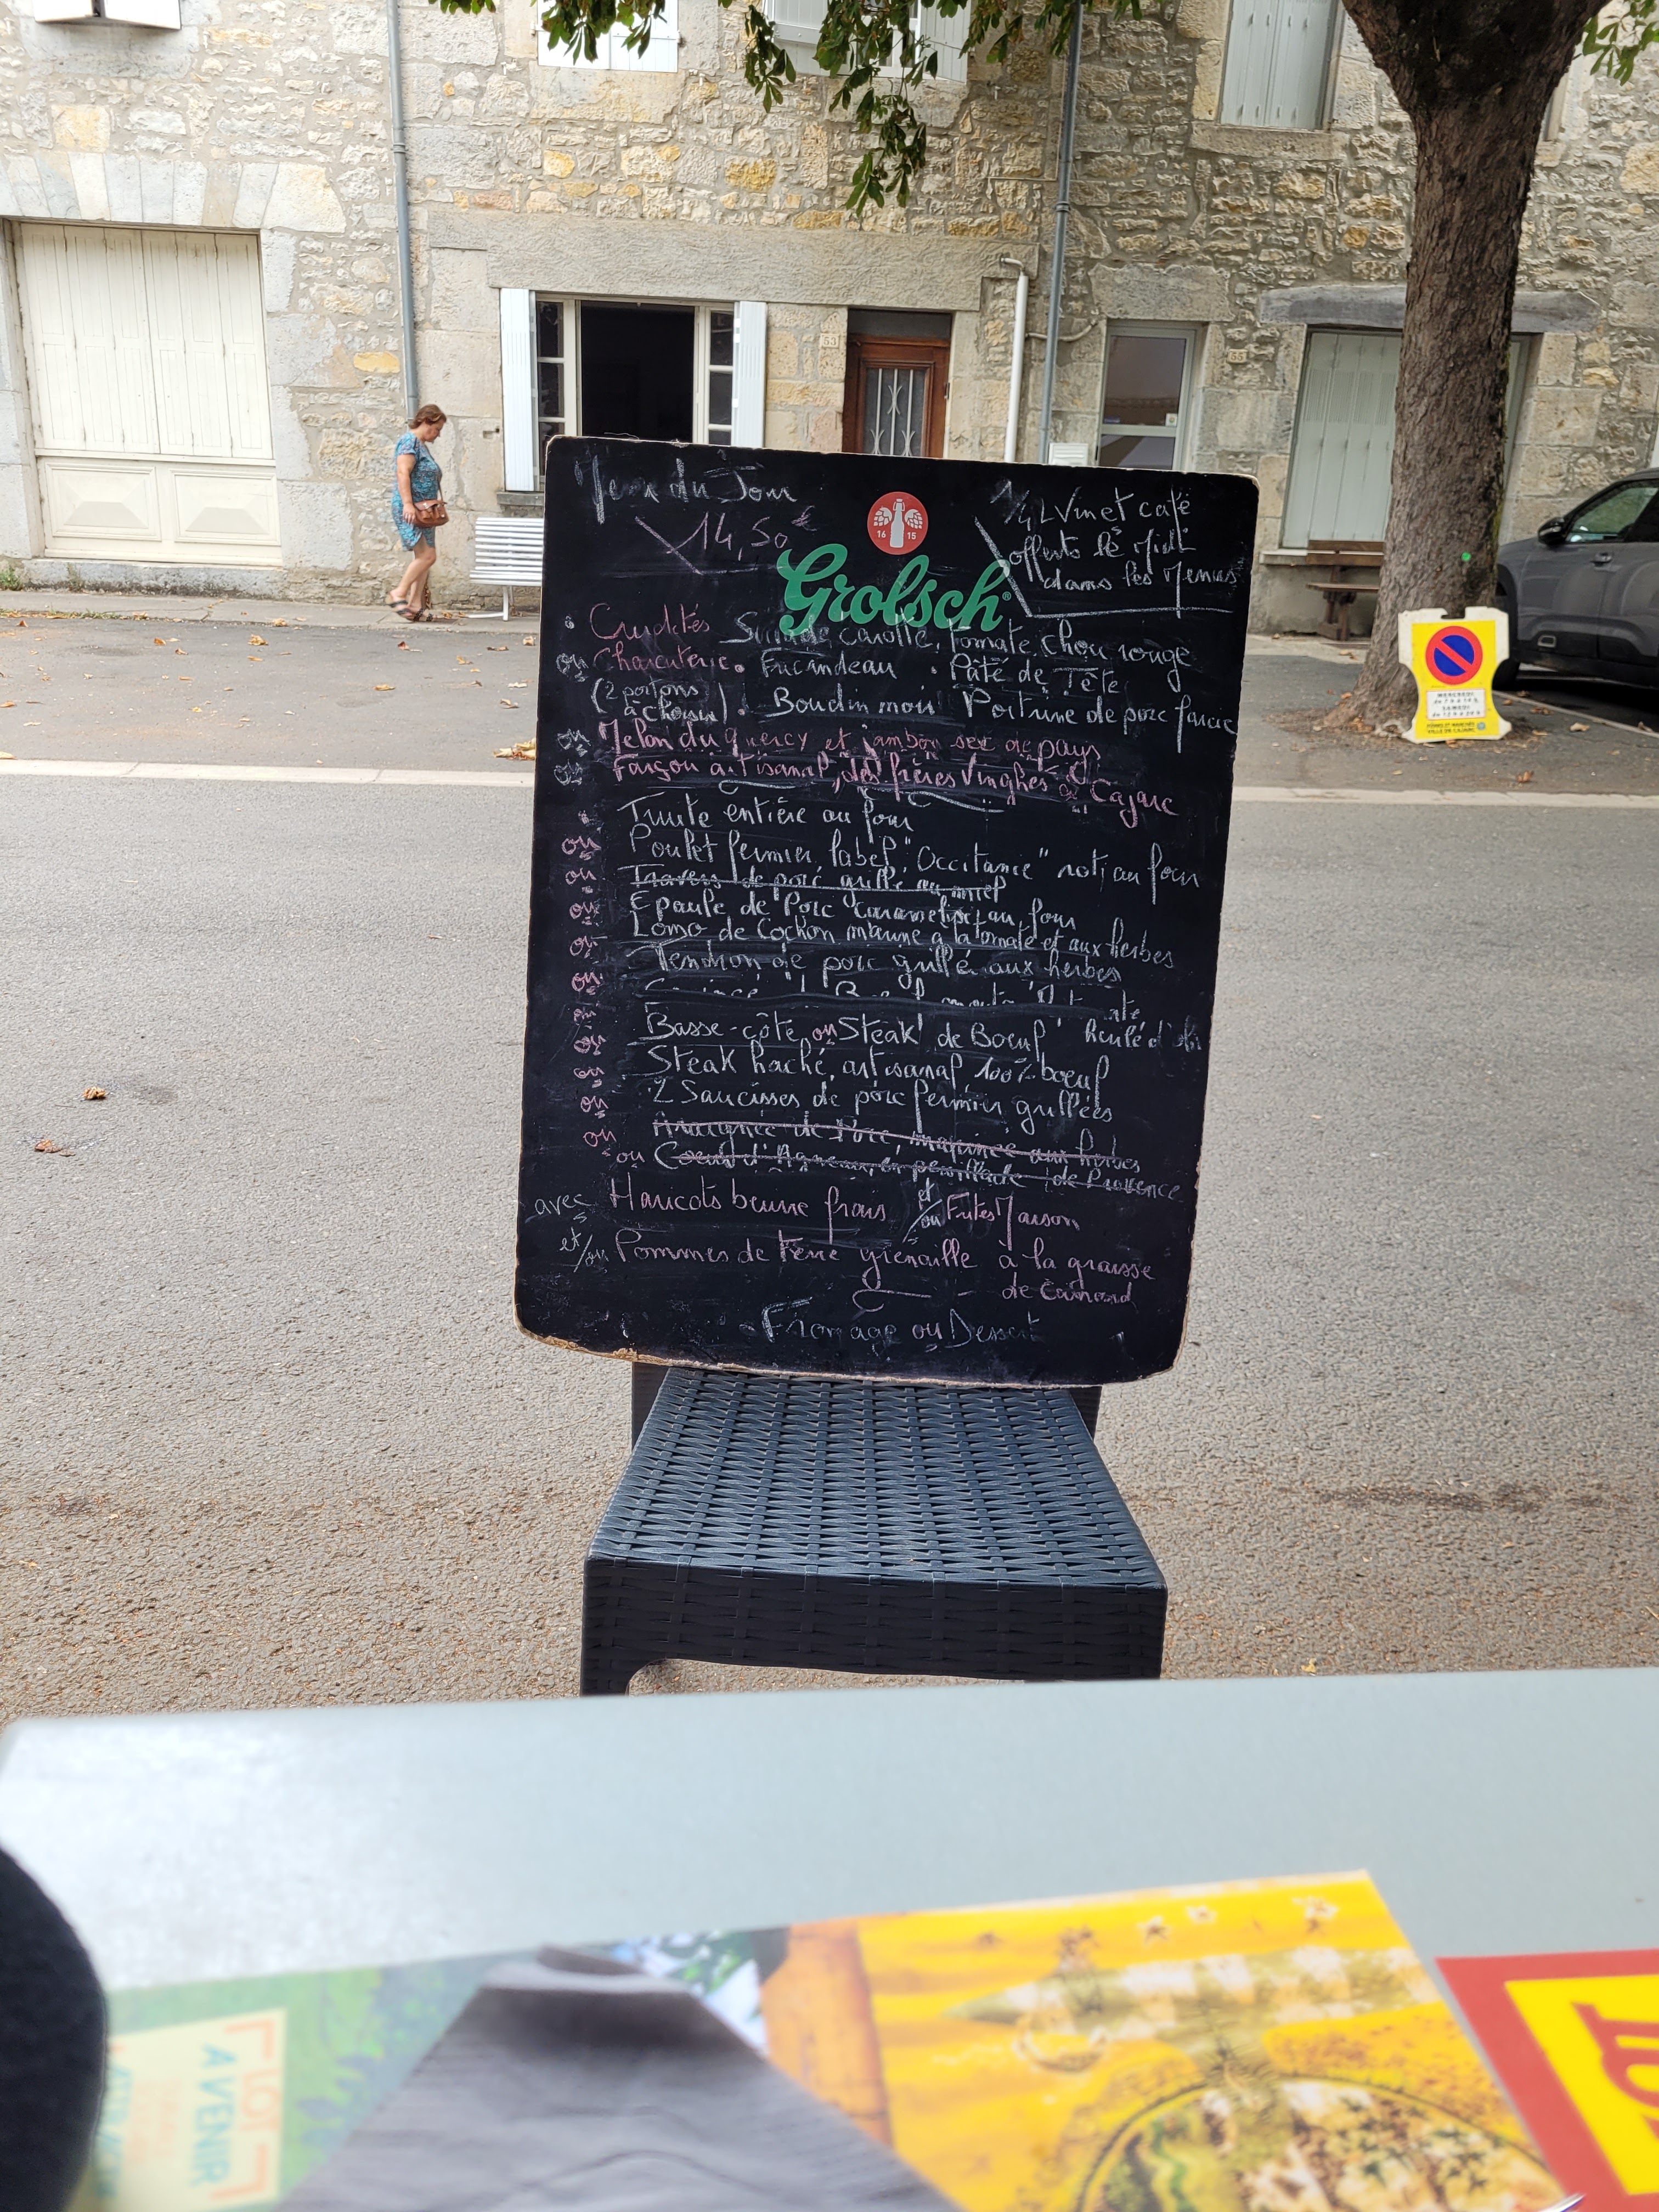 Menu du Jour
14,50€
1/4L Vin et café
offerts le Midi
dans les Menus
16 15
Grolsch
Crudités carotte, tomate, chou rouge
ou Charcuterie • Fricandeau • Pâté de Tête
(2 portions à choisir) • Boudin noir Poitrine de porc farcie
ou Melon du quercy et jambon sec de pays
ou Farçou artisanal des frères Vinghes à Cajarc
• Truite entière au four
ou Poulet fermier label "Occitanie" roti au four
ou Travers de porc grillé au miel
ou Epaule de Porc caramélisé au four
ou Lomo de Cochon mariné à la tomate et aux herbes
ou Tendron de porc grillé aux herbes
Basse-côte ou Steak de Boeuf
ou Steak haché artisanal 100% boeuf
ou 2 Saucisses de porc fermier grillées
ou Araignée de Porc marinée aux herbes
ou Coeur d'Agneau en persillade de Provence
avec Haricots beurre frais et/ou Frites Maison
et/ou Pommes de terre grenaille à la graisse
de Canard
Fromage ou Dessert
53
55
MERCREDI
SAMEDI
FOIRES ET MARCHÉS
VILLE DE CAJARC
LOT
A VENIR